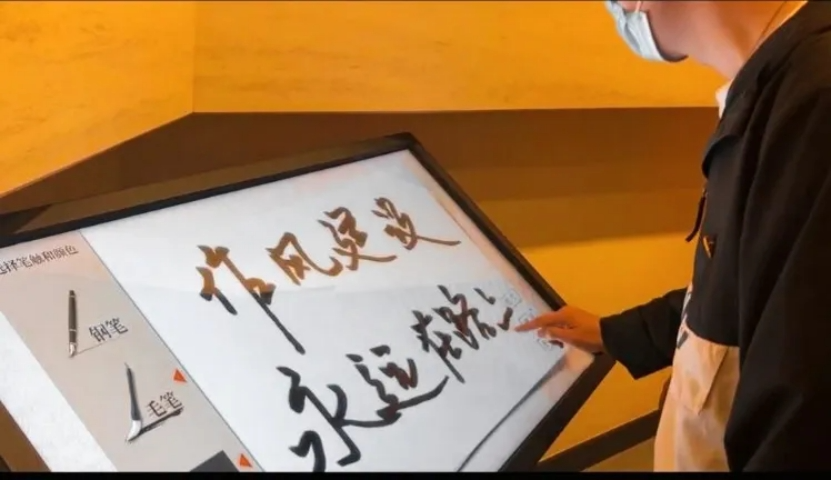 选择笔触和颜色
钢笔
毛笔
作风建设
永远在路上